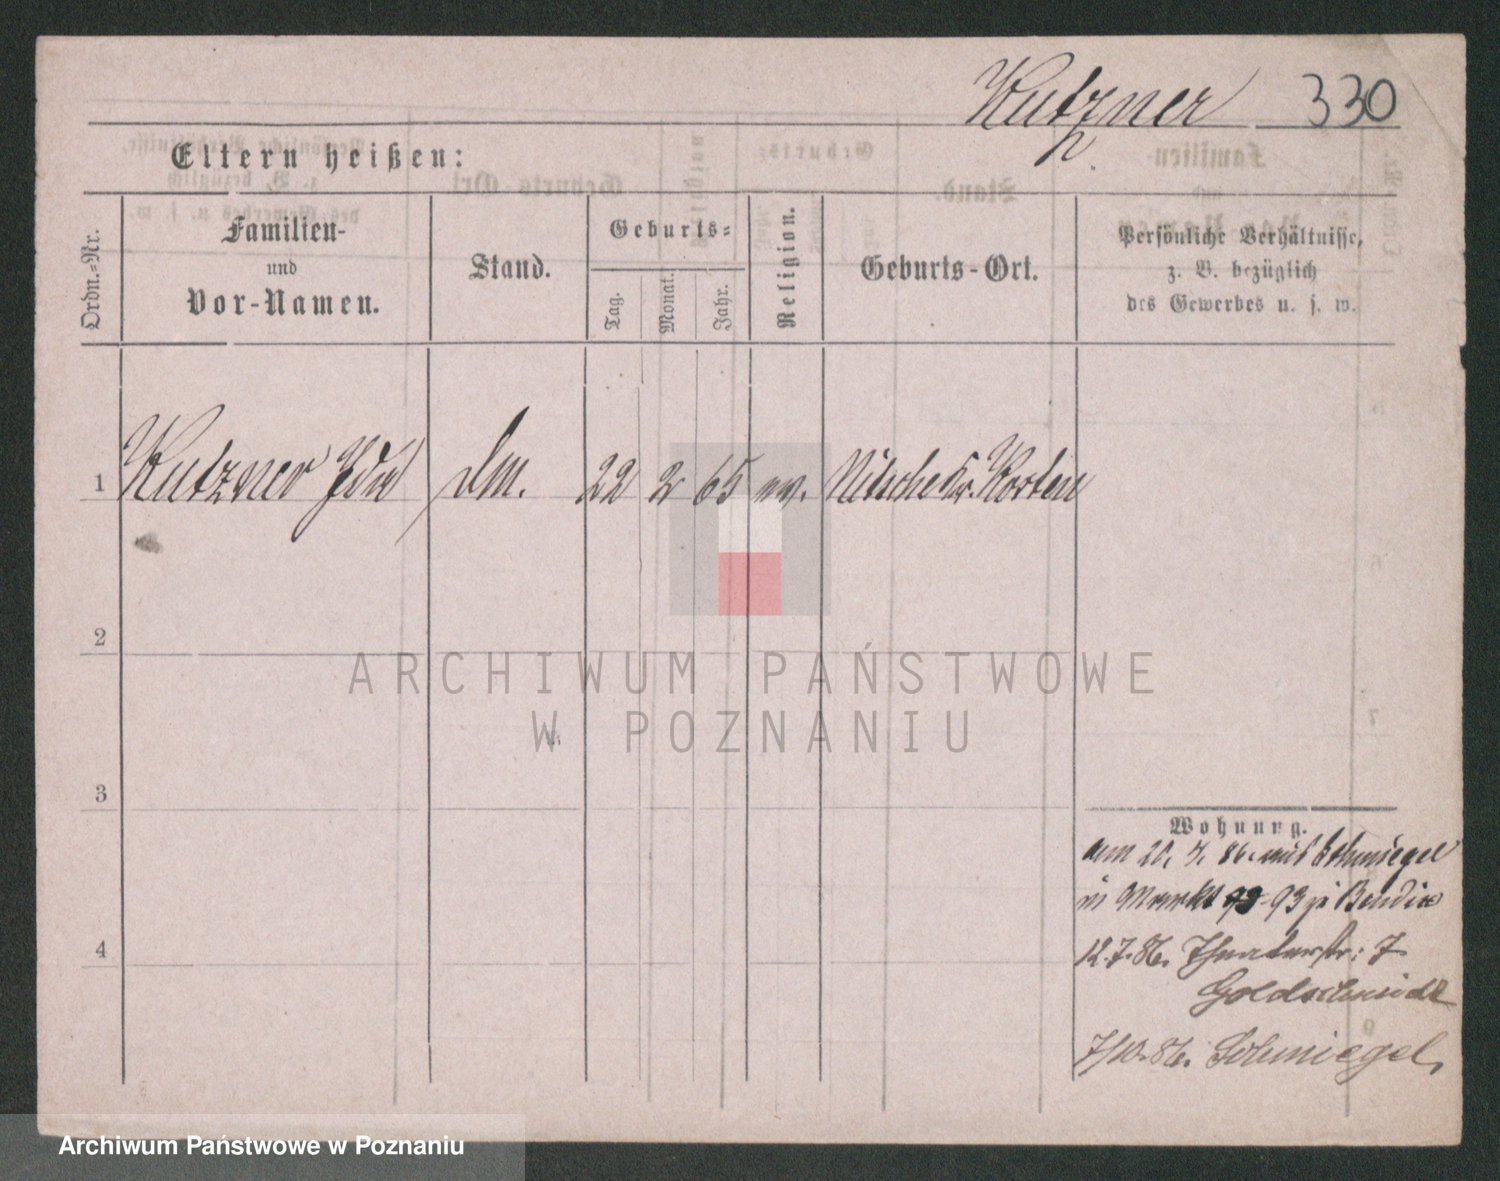 Kutzner 330
Eltern heißen:
Ordn.-Nr.
Familien-
und
Vor-Namen.
Stand.
Geburts-
Tag.
Monat.
Jahr.
Religion.
Geburts-Ort.
Persönliche Verhältnisse,
z. B. bezüglich
des Gewerbes u. s. w.
1 Kutzner Dm. 22 2 65 ev. Nitsche Kr. Kosten
2
3
4
Wohnung.
am 20. 4. 86 aus Schmiegel
in Markt 93 Bendix
12.7.86. Theaterstr: 7
Goldschmidt
7/10.86. Schmiegel.
ARCHIWUM PAŃSTWOWE
W POZNANIU
Archiwum Państwowe w Poznaniu